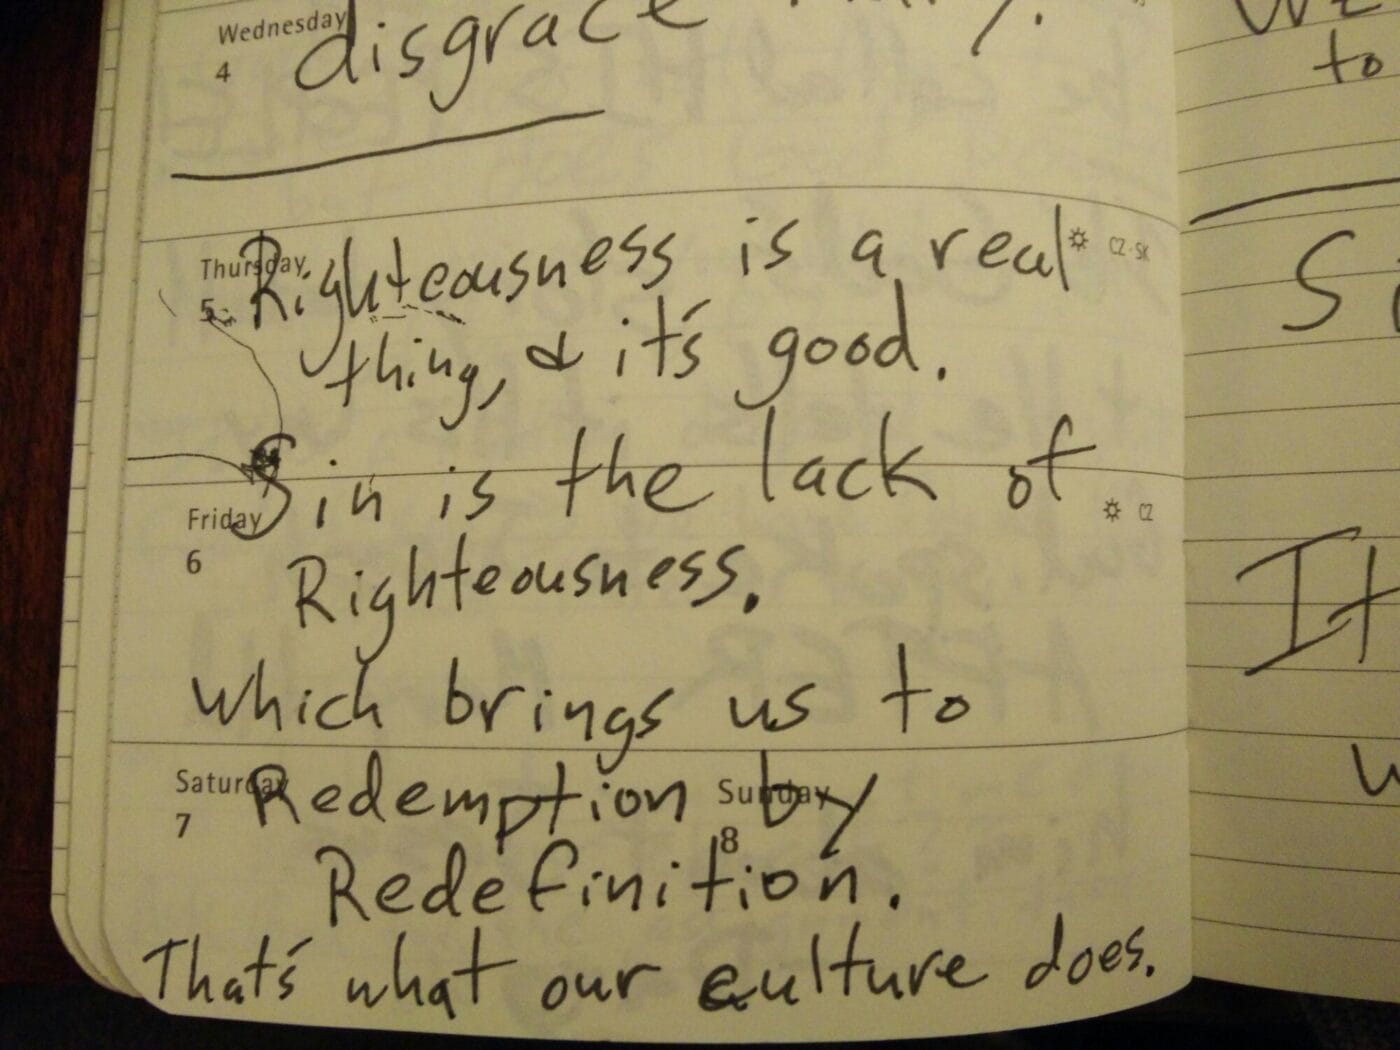 Wednesday
4
disgrace
Thursday
5
Righteousness is a real
CZ·SK
thing, & it's good.
Sin is the lack of
Friday
6
CZ
Righteousness.
Which brings us to
Saturday
7
Sunday
8
Redemption by
Redefinition.
That's what our culture does.
to
It